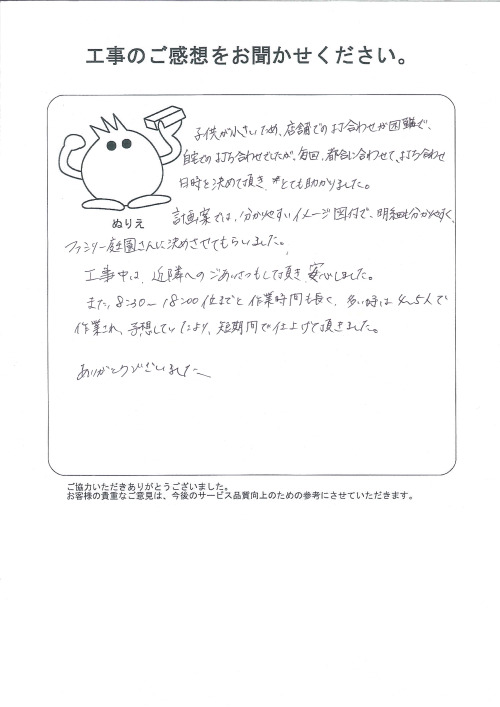 工事のご感想をお聞かせください。
子供が小さいため、店舗での打合わせが困難で、
自宅での打ち合わせでしたが、毎回、都合に合わせて、打ち合わせ
日時を決めて頂き、とても助かりました。
計画案では、分かりやすいイメージ図付で、明細も分かりやすく、
ぬりえ
ファミリー庭園さんに決めさせてもらいました。
工事中は、近隣へのごあいさつもして頂き、安心しました。
また、8:30～18:00位までと作業時間も長く、多い時は4～5人で
作業され、予想していたより、短期間で仕上げて頂きました。
ありがとうございました
ご協力いただきありがとうございました。
お客様の貴重なご意見は、今後のサービス品質向上のための参考にさせていただきます。